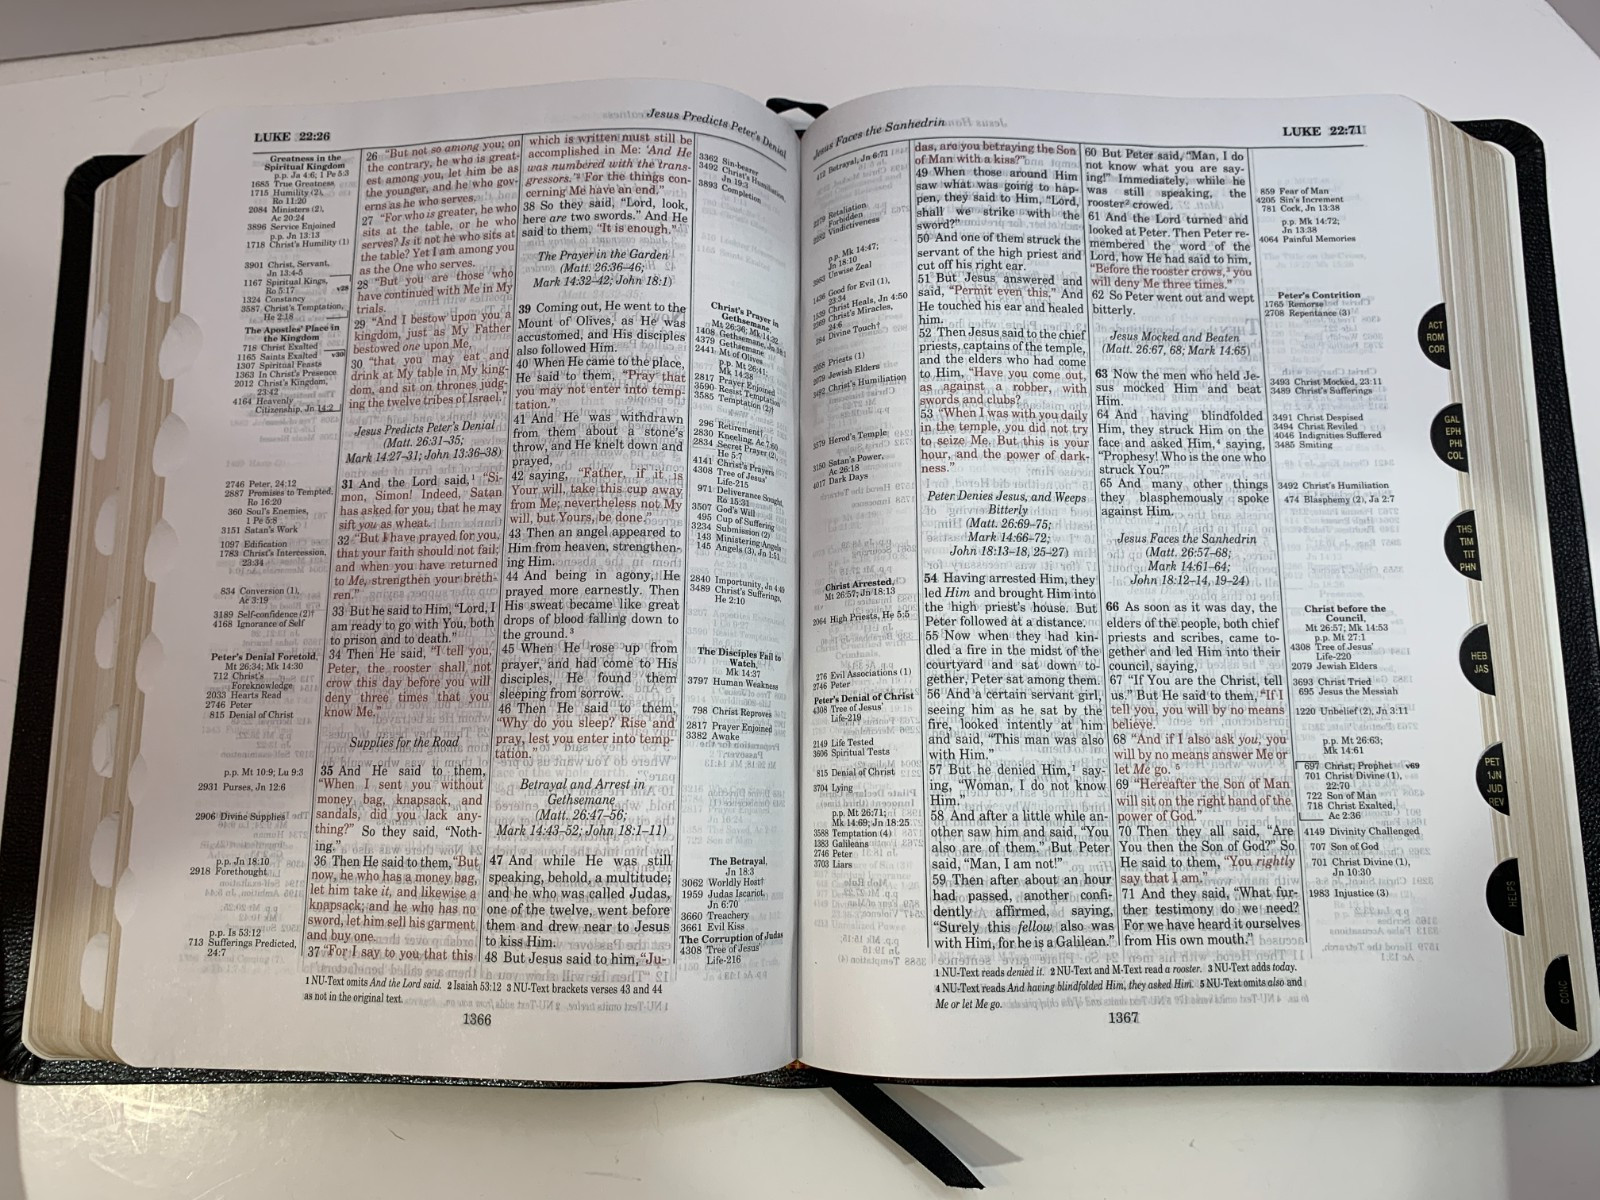 LUKE 22:26
Jesus Predicts Peter's Denial
Greatness in the
Spiritual Kingdom
p.p. Ja 4:6; 1 Pe 5:3
1685 True Greatness
1715 Humility (2),
Ro 11:20
2084 Ministers (2),
Ac 20:24
3896 Service Enjoined
p.p. Jn 13:13
1718 Christ's Humility (1)
3901 Christ, Servant,
Jn 13:4-5
1167 Spiritual Kings,
Ro 5:17
v28
1324 Constancy
3587 Christ's Temptation,
He 2:18
The Apostles' Place in
the Kingdom
718 Christ Exalted
1165 Saints Exalted
v30
1307 Spiritual Feasts
1363 In Christ's Presence
2012 Christ's Kingdom,
23:42
4164 Heavenly
Citizenship, Jn 14:2
2746 Peter, 24:12
2887 Promises to Tempted,
Ro 16:20
360 Soul's Enemies,
1 Pe 5:8
3151 Satan's Work
1097 Edification
1783 Christ's Intercession,
23:34
834 Conversion (1),
Ac 3:19
3189 Self-confidence (2)†
4168 Ignorance of Self
Peter's Denial Foretold,
Mt 26:34; Mk 14:30
712 Christ's
Foreknowledge
2033 Hearts Read
2746 Peter
815 Denial of Christ
p.p. Mt 10:9; Lu 9:3
2931 Purses, Jn 12:6
2906 Divine Supplies†
p.p. Jn 18:10
2918 Forethought
p.p. Is 53:12
713 Sufferings Predicted,
24:7
26 "But not so among you; on
the contrary, he who is great-
est among you, let him be as
the younger, and he who gov-
erns as he who serves.
27 "For who is greater, he who
sits at the table, or he who
serves? Is it not he who sits at
the table? Yet I am among you
as the One who serves.
28 "But you are those who
have continued with Me in My
trials.
29 "And I bestow upon you a
kingdom, just as My Father
bestowed one upon Me,
30 "that you may eat and
drink at My table in My king-
dom, and sit on thrones judg-
ing the twelve tribes of Israel."
Jesus Predicts Peter's Denial
(Matt. 26:31–35;
Mark 14:27–31; John 13:36–38)
31 And the Lord said,1 "Si-
mon, Simon! Indeed, Satan
has asked for you, that he may
sift you as wheat.
32 "But I have prayed for you,
that your faith should not fail;
and when you have returned
to Me, strengthen your breth-
ren."
33 But he said to Him, "Lord, I
am ready to go with You, both
to prison and to death."
34 Then He said, "I tell you,
Peter, the rooster shall not
crow this day before you will
deny three times that you
know Me."
Supplies for the Road
35 And He said to them,
"When I sent you without
money bag, knapsack, and
sandals, did you lack any-
thing?" So they said, "Noth-
ing."
36 Then He said to them, "But
now, he who has a money bag,
let him take it, and likewise a
knapsack; and he who has no
sword, let him sell his garment
and buy one.
37 "For I say to you that this
which is written must still be
accomplished in Me: 'And He
was numbered with the trans-
gressors.'2 For the things con-
cerning Me have an end."
38 So they said, "Lord, look,
here are two swords." And He
said to them, "It is enough."
The Prayer in the Garden
(Matt. 26:36–46;
Mark 14:32–42; John 18:1)
39 Coming out, He went to the
Mount of Olives, as He was
accustomed, and His disciples
also followed Him.
40 When He came to the place,
He said to them, "Pray that
you may not enter into temp-
tation."
41 And He was withdrawn
from them about a stone's
throw, and He knelt down and
prayed,
42 saying, "Father, if it is
Your will, take this cup away
from Me; nevertheless not My
will, but Yours, be done."
43 Then an angel appeared to
Him from heaven, strengthen-
ing Him.
44 And being in agony, He
prayed more earnestly. Then
His sweat became like great
drops of blood falling down to
the ground.3
45 When He rose up from
prayer, and had come to His
disciples, He found them
sleeping from sorrow.
46 Then He said to them,
"Why do you sleep? Rise and
pray, lest you enter into temp-
tation."
Betrayal and Arrest in
Gethsemane
(Matt. 26:47–56;
Mark 14:43–52; John 18:1–11)
47 And while He was still
speaking, behold, a multitude;
and he who was called Judas,
one of the twelve, went before
them and drew near to Jesus
to kiss Him.
48 But Jesus said to him, "Ju-
3362 Sin-bearer
3492 Christ's Humiliation,
Jn 19:3
3893 Completion
Christ's Prayer in
Gethsemane,
Mt 26:36; Mk 14:32
1408 Gethsemane, Jn 18:1
4379 Gethsemane
2441 Mt of Olives
p.p. Mt 26:41;
Mk 14:38
2817 Prayer Enjoined
3590 Resist Temptation
3585 Temptation (2)†
296 Retirement
2830 Kneeling, Ac 7:60
2834 Secret Prayer (2),
He 5:7
4141 Christ's Prayers
4308 Tree of Jesus'
Life-215
971 Deliverance Sought,
Ro 15:31
3507 God's Will
495 Cup of Suffering
3234 Submission (2)
143 Ministering Angels
145 Angels (3), Jn 1:51
2840 Importunity, Jn 4:49
3489 Christ's Sufferings,
He 2:10
The Disciples Fail to
Watch,
Mk 14:37
3797 Human Weakness
798 Christ Reproves
2817 Prayer Enjoined
3382 Awake
The Betrayal,
Jn 18:3
3062 Worldly Host†
1959 Judas Iscariot,
Jn 6:70
3660 Treachery
3661 Evil Kiss
The Corruption of Judas
4308 Tree of Jesus'
Life-216
1 NU-Text omits And the Lord said. 2 Isaiah 53:12 3 NU-Text brackets verses 43 and 44
as not in the original text.
1366
Jesus Faces the Sanhedrin
LUKE 22:71
412 Betrayal, Jn 6:71
Retaliation
Forbidden
Vindictiveness
p.p. Mk 14:47;
Jn 18:10
Unwise Zeal
1436 Good for Evil (1),
23:34
Christ Heals, Jn 4:50
Christ's Miracles,
24:6
Divine Touch†
Priests (1)
Jewish Elders
Christ's Humiliation
Herod's Temple
3150 Satan's Power,
Ac 26:18
4017 Dark Days
Christ Arrested,
Mt 26:57; Jn 18:13
2064 High Priests, He 5:5
276 Evil Associations (1)
2746 Peter
Peter's Denial of Christ
4308 Tree of Jesus'
Life-219
2149 Life Tested
3606 Spiritual Tests
815 Denial of Christ
3704 Lying
p.p. Mt 26:71;
Mk 14:69; Jn 18:25
3588 Temptation (4)
1383 Galileans
2746 Peter
3703 Liars
das, are you betraying the Son
of Man with a kiss?"
49 When those around Him
saw what was going to hap-
pen, they said to Him, "Lord,
shall we strike with the
sword?"
50 And one of them struck the
servant of the high priest and
cut off his right ear.
51 But Jesus answered and
said, "Permit even this." And
He touched his ear and healed
him.
52 Then Jesus said to the chief
priests, captains of the temple,
and the elders who had come
to Him, "Have you come out,
as against a robber, with
swords and clubs?
53 "When I was with you daily
in the temple, you did not try
to seize Me. But this is your
hour, and the power of dark-
ness."
Peter Denies Jesus, and Weeps
Bitterly
(Matt. 26:69–75;
Mark 14:66–72;
John 18:13–18, 25–27)
54 Having arrested Him, they
led Him and brought Him into
the high priest's house. But
Peter followed at a distance.
55 Now when they had kin-
dled a fire in the midst of the
courtyard and sat down to-
gether, Peter sat among them.
56 And a certain servant girl,
seeing him as he sat by the
fire, looked intently at him
and said, "This man was also
with Him."
57 But he denied Him,1 say-
ing, "Woman, I do not know
Him."
58 And after a little while an-
other saw him and said, "You
also are of them." But Peter
said, "Man, I am not!"
59 Then after about an hour
had passed, another confi-
dently affirmed, saying,
"Surely this fellow also was
with Him, for he is a Galilean."
60 But Peter said, "Man, I do
not know what you are say-
ing!" Immediately, while he
was still speaking, the
rooster2 crowed.
61 And the Lord turned and
looked at Peter. Then Peter re-
membered the word of the
Lord, how He had said to him,
"Before the rooster crows,3 you
will deny Me three times."
62 So Peter went out and wept
bitterly.
Jesus Mocked and Beaten
(Matt. 26:67, 68; Mark 14:65)
63 Now the men who held Je-
sus mocked Him and beat
Him.
64 And having blindfolded
Him, they struck Him on the
face and asked Him,4 saying,
"Prophesy! Who is the one who
struck You?"
65 And many other things
they blasphemously spoke
against Him.
Jesus Faces the Sanhedrin
(Matt. 26:57–68;
Mark 14:61–64;
John 18:12–14, 19–24)
66 As soon as it was day, the
elders of the people, both chief
priests and scribes, came to-
gether and led Him into their
council, saying,
67 "If You are the Christ, tell
us." But He said to them, "If I
tell you, you will by no means
believe.
68 "And if I also ask you, you
will by no means answer Me or
let Me go.5
69 "Hereafter the Son of Man
will sit on the right hand of the
power of God."
70 Then they all said, "Are
You then the Son of God?" So
He said to them, "You rightly
say that I am."
71 And they said, "What fur-
ther testimony do we need?
For we have heard it ourselves
from His own mouth."
859 Fear of Man
4205 Sin's Increment
781 Cock, Jn 13:38
p.p. Mk 14:72;
Jn 13:38
4064 Painful Memories
Peter's Contrition
1765 Remorse
2708 Repentance (3)
3493 Christ Mocked, 23:11
3489 Christ's Sufferings
3491 Christ Despised
3494 Christ Reviled
4046 Indignities Suffered
3485 Smiting
3492 Christ's Humiliation
474 Blasphemy (1), Jn 2:7
Christ before the
Council,
Mt 26:57; Mk 14:53
p.p. Mt 27:1
4308 Tree of Jesus'
Life-220
2079 Jewish Elders
3693 Christ Tried
695 Jesus the Messiah
1220 Unbelief (2), Jn 3:11
p.p. Mt 26:63;
Mk 14:61
697 Christ, Prophet v69
701 Christ Divine (1),
22:70
722 Son of Man
718 Christ Exalted,
Ac 2:36
4149 Divinity Challenged
707 Son of God
701 Christ Divine (1),
Jn 10:30
1983 Injustice (3)
1 NU-Text reads denied it. 2 NU-Text and M-Text read a rooster. 3 NU-Text adds today.
4 NU-Text reads And having blindfolded Him, they asked Him. 5 NU-Text omits also and
Me or let Me go.
1367
ACT
ROM
COR
GAL
EPH
PHI
COL
THS
TIM
TIT
PHN
HEB
JAS
PET
1JN
JUD
REV
HELPS
CONC